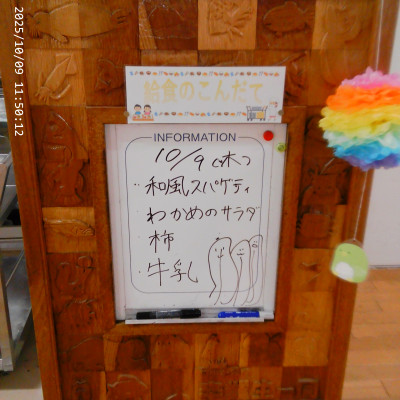 2025/10/09 11:50:12
給食のこんだて
INFORMATION
10/9(木)
・和風スパゲティ
・わかめのサラダ
・柿
・牛乳